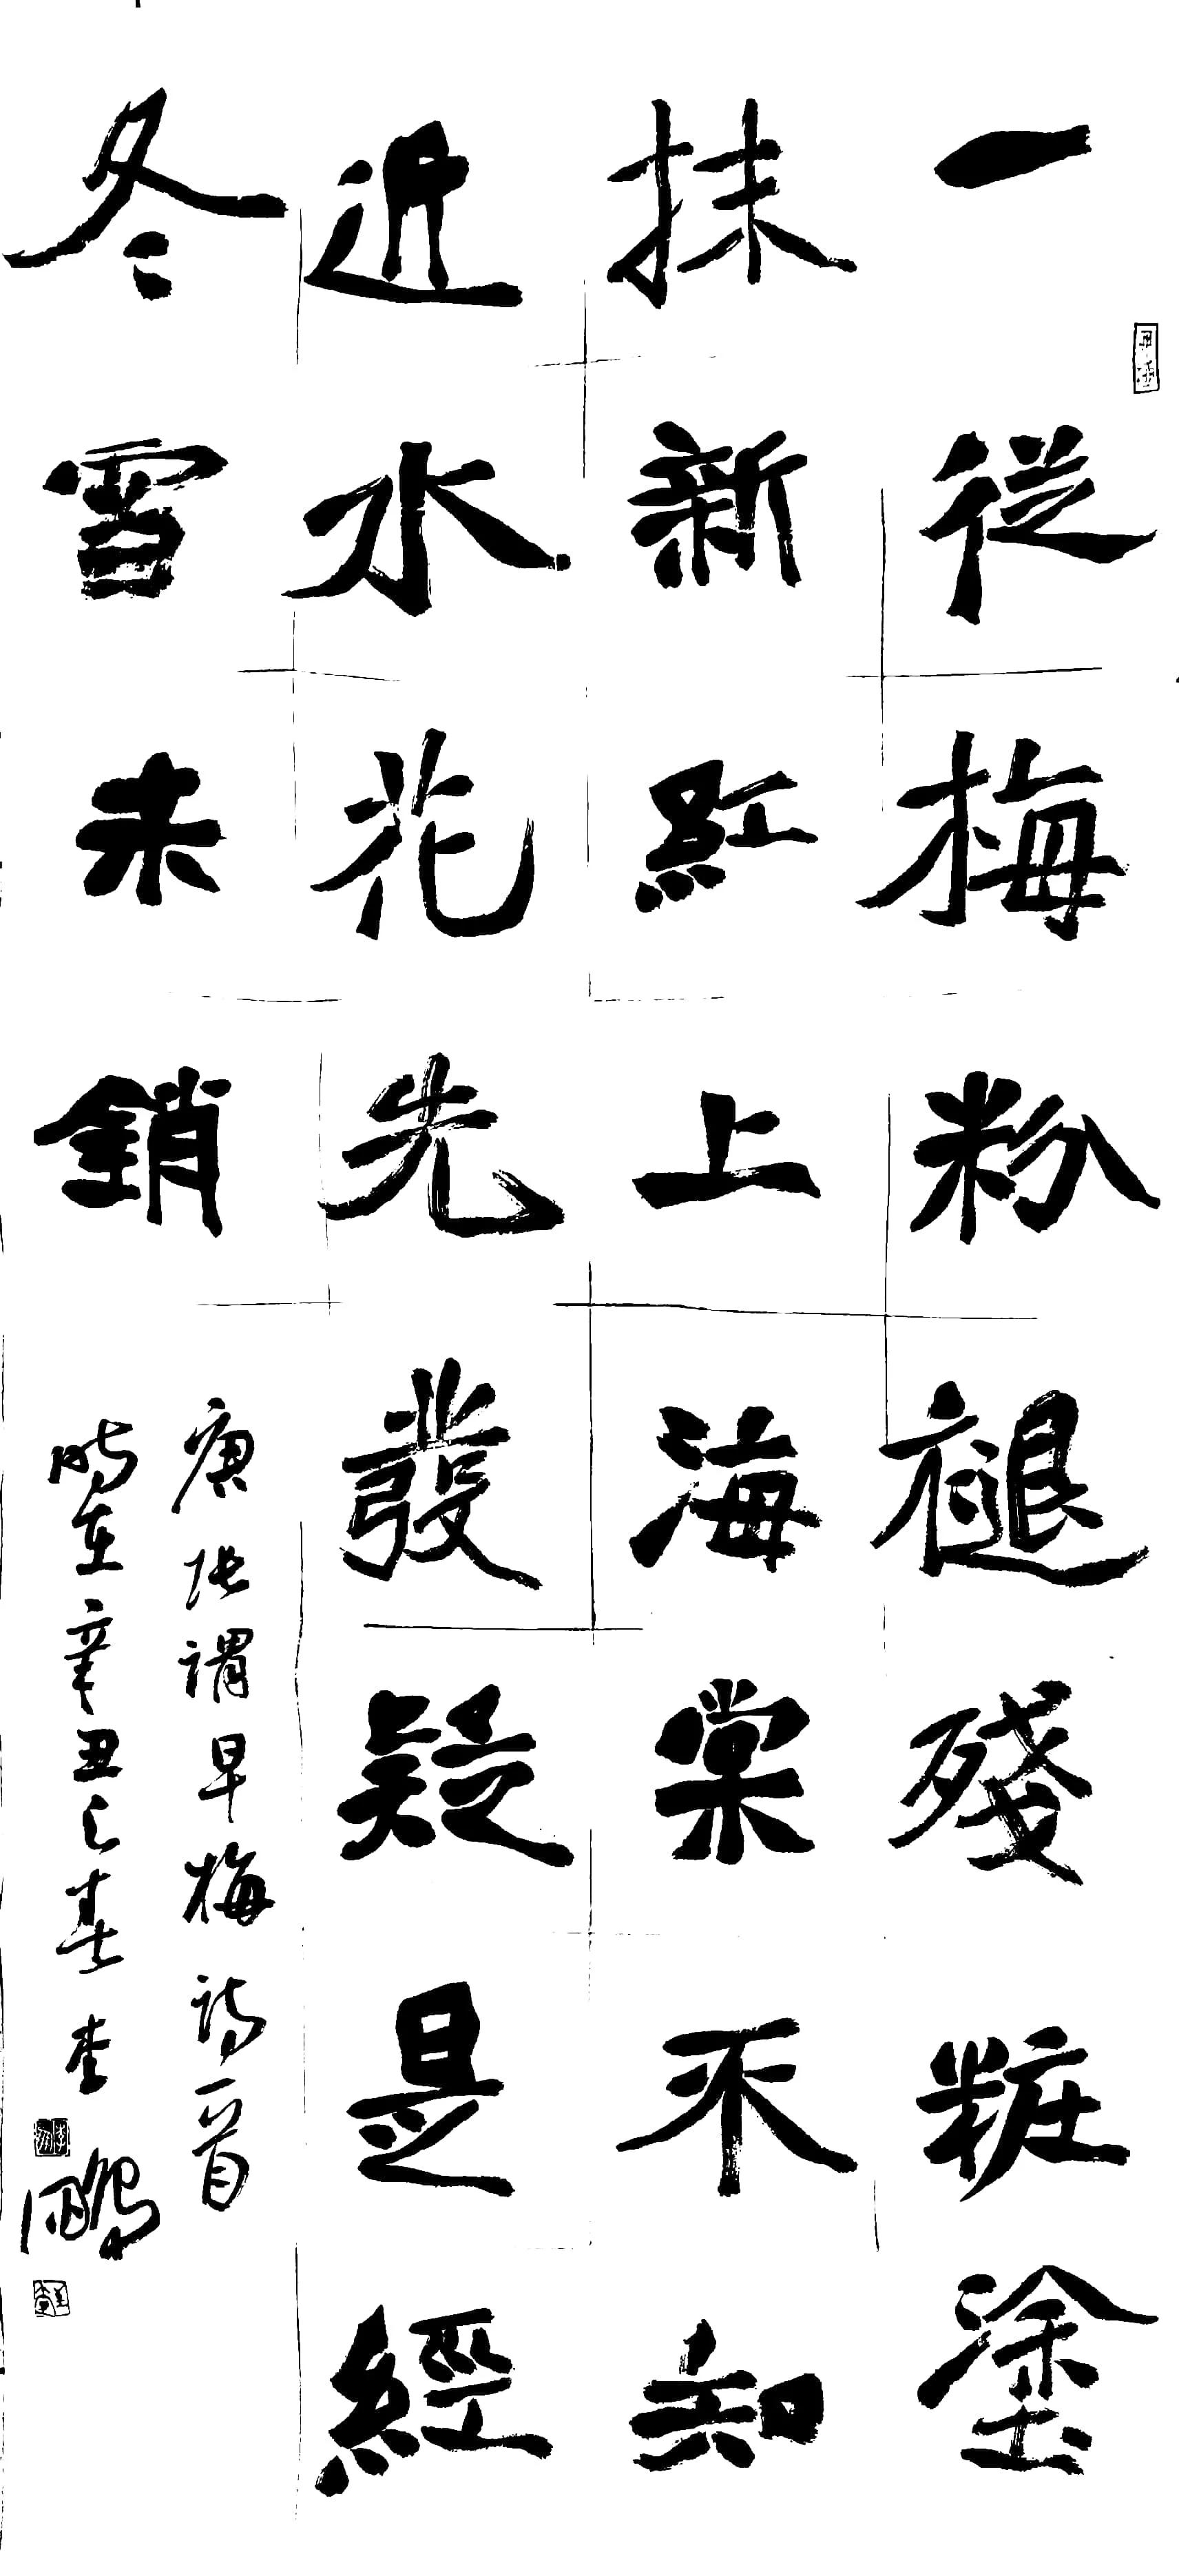 一從梅粉褪殘粧塗
抹新紅上海棠不知
近水花先發疑是經
冬雪未銷
唐張謂早梅詩一首
時在辛丑之春李鵬